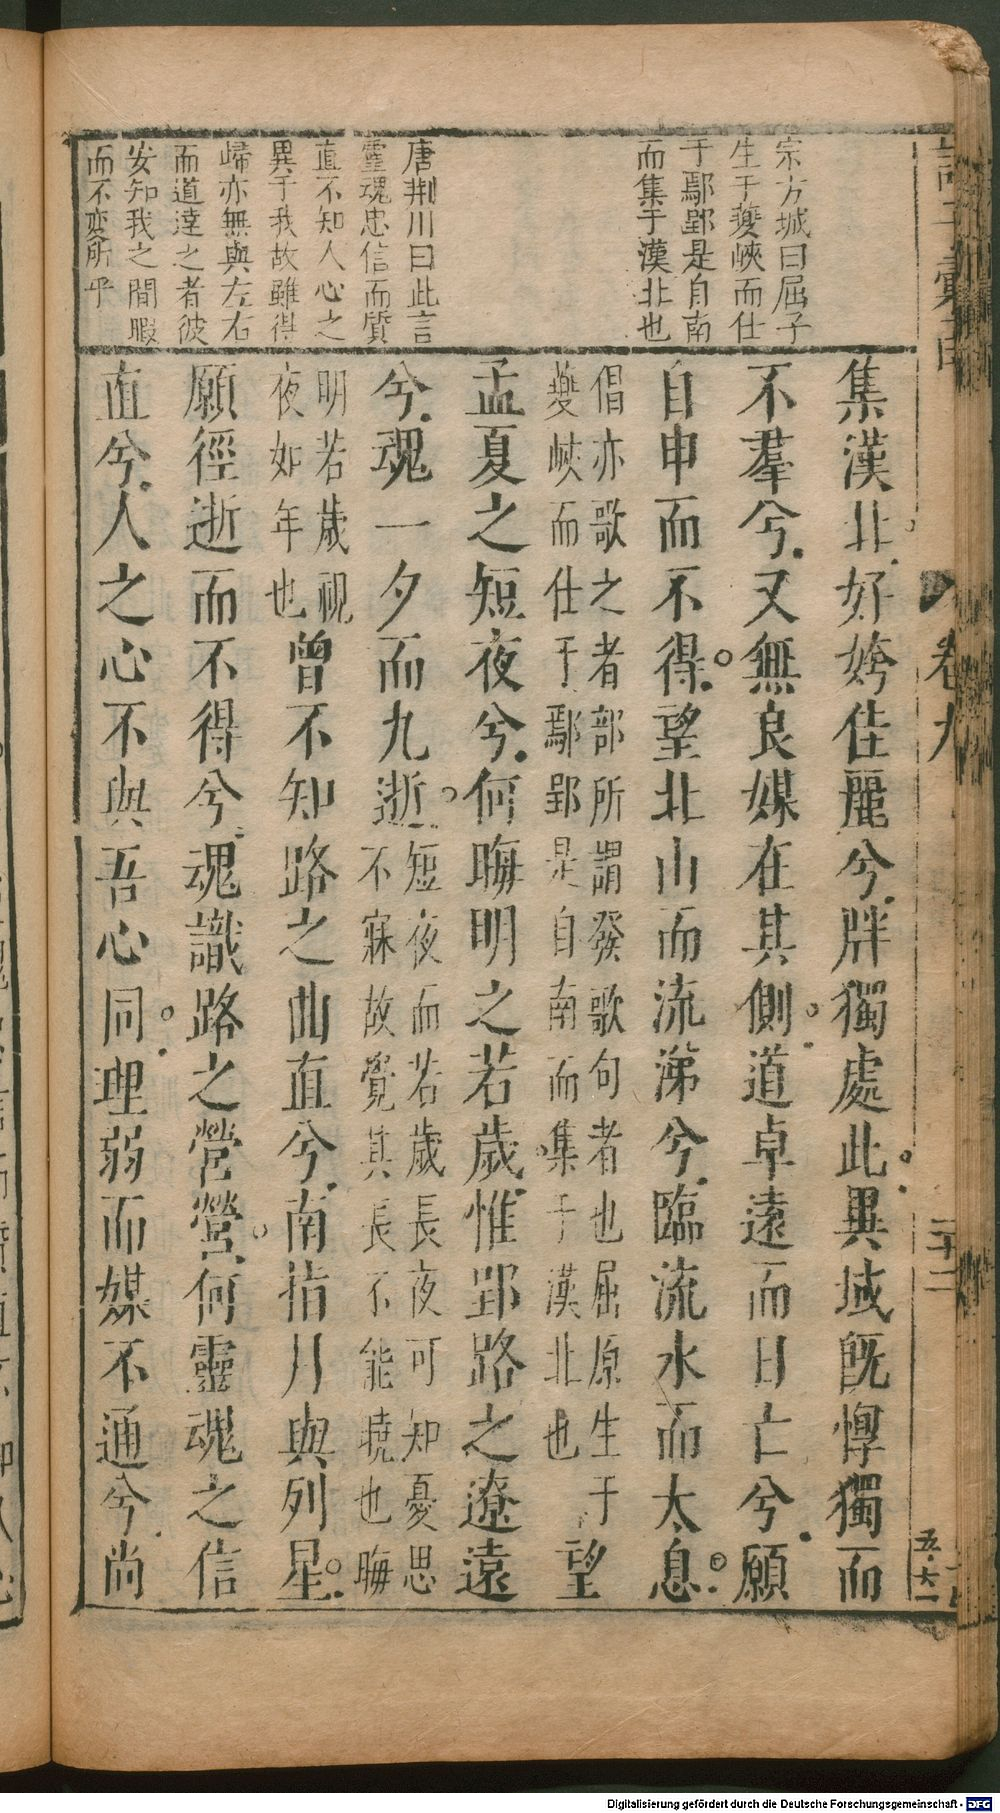 宗方城曰屈子
生于夔峽而仕
于鄢郢是自南
而集于漢北也
唐荆川曰此言
靈魂忠信而質
直不知人心之
異于我故雖得
歸亦無與左右
而道達之者彼
安知我之間暇
而不変所乎
集漢北好姱佳麗兮胖獨處此異域旣惸獨而
不羣兮又無良媒在其側道卓遠而日亡兮願
自申而不得望北山而流涕兮臨流水而太息
倡亦歌之者部所謂發歌句者也屈原生于
夔峽而仕于鄢郢是自南而集于漢北也
望
孟夏之短夜兮何晦明之若歲惟郢路之遼遠
兮魂一夕而九逝
短夜而若歲長夜可知憂思
不寐故覺其長不能曉也晦
明若歲視
夜如年也
曾不知路之曲直兮南指月與列星
願徑逝而不得兮魂識路之營營何靈魂之信
直兮人之心不與吾心同理弱而媒不通兮尚
卷九
二十二
五·六
Digitalisierung gefördert durch die Deutsche Forschungsgemeinschaft - DFG